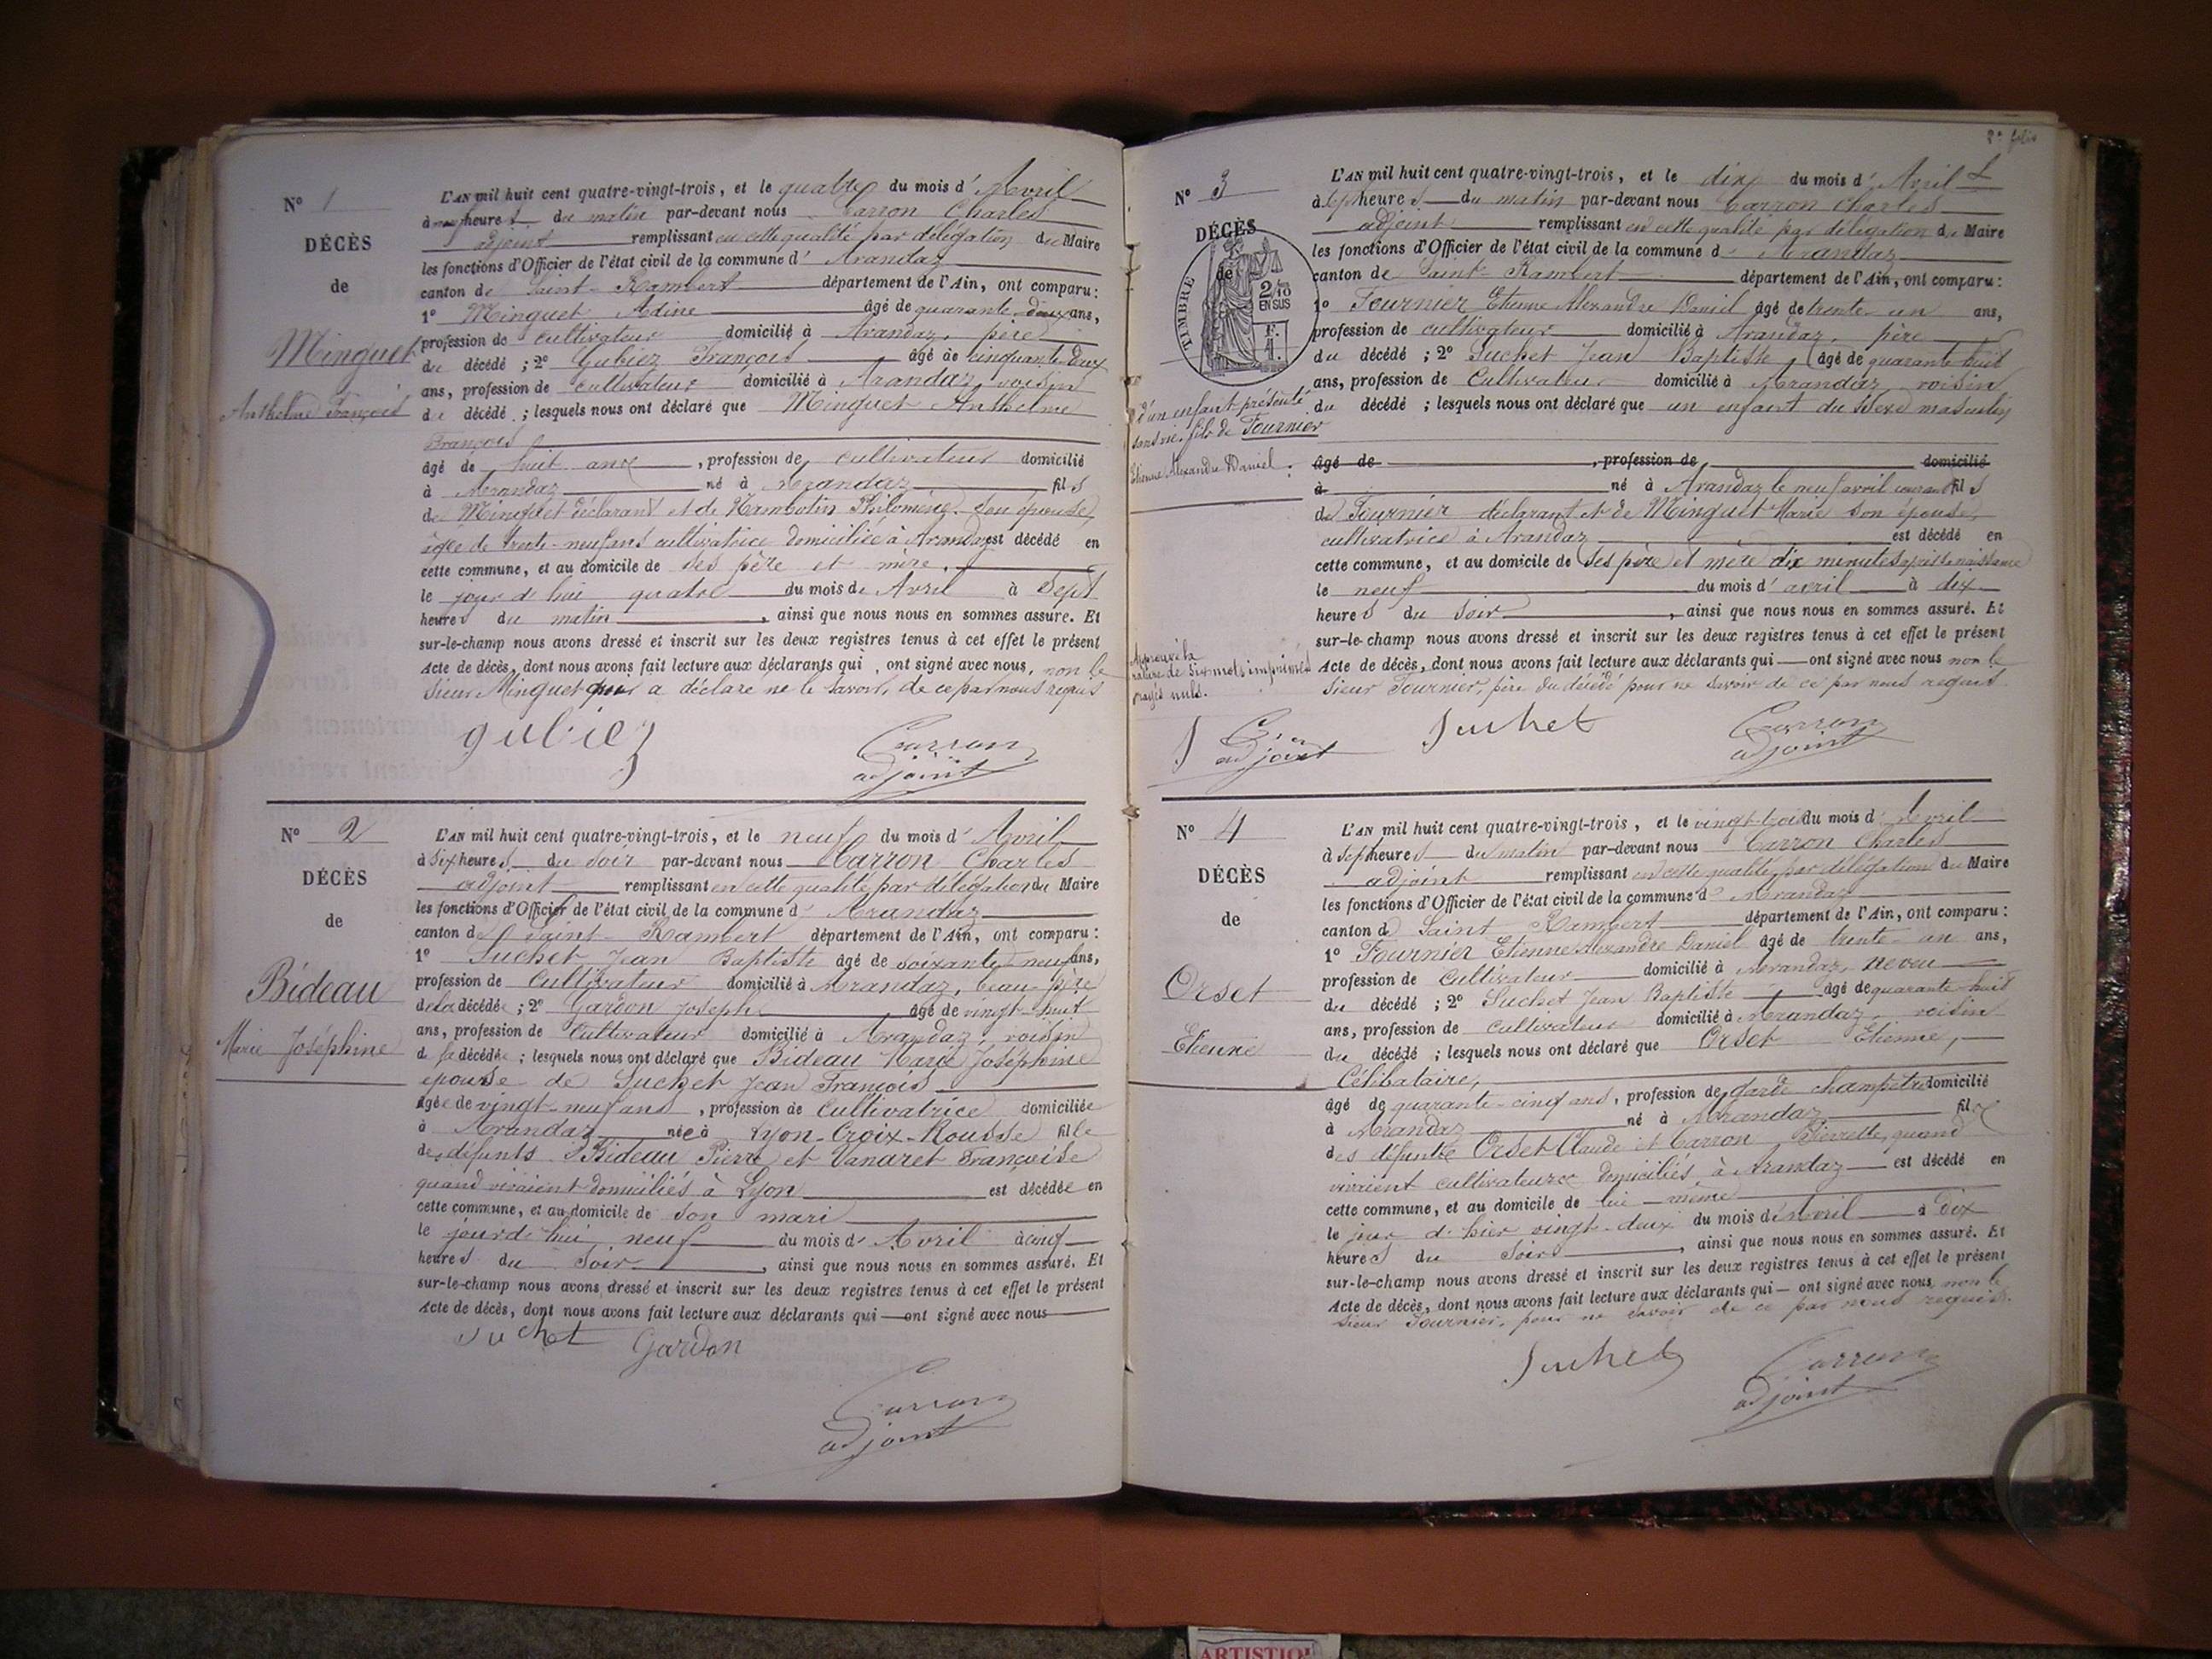 N° 1
DÉCÈS
de
Minguet
Anthelme François
L'AN mil huit cent quatre-vingt-trois, et le quatre du mois d'Avril
à neuf heures du matin par-devant nous Carron Charles
adjoint remplissant en cette qualité par délégation du Maire
les fonctions d'Officier de l'état civil de la commune d'Arandaz
canton de Saint-Rambert département de l'Ain, ont comparu :
1° Minguet Adine âgé de quarante-deux ans,
profession de cultivateur domicilié à Arandaz, père
du décédé ; 2° Gubiez François âgé de cinquante deux
ans, profession de cultivateur domicilié à Arandaz, voisin
du décédé ; lesquels nous ont déclaré que Minguet Anthelme
François
âgé de huit ans, profession de cultivateur domicilié
à Arandaz né à Arandaz fils
de Minguet déclarant et de Philomène son épouse,
âgée de trente-neuf ans cultivatrice domiciliée à Arandaz est décédé en
cette commune, et au domicile de ses père et mère,
le jour d'hui quatre du mois de Avril à sept
heures du matin, ainsi que nous nous en sommes assuré. Et
sur-le-champ nous avons dressé et inscrit sur les deux registres tenus à cet effet le présent
Acte de décès, dont nous avons fait lecture aux déclarants qui ont signé avec nous, non le
Sieur Minguet qui a déclaré ne le savoir, de ce par nous requis
gubiez
Carron
adjoint
N° 2
DÉCÈS
de
Bideau
Marie Joséphine
L'AN mil huit cent quatre-vingt-trois, et le neuf du mois d'Avril
à six heures du soir par-devant nous Carron Charles
adjoint remplissant en cette qualité par délégation du Maire
les fonctions d'Officier de l'état civil de la commune d'Arandaz
canton de Saint-Rambert département de l'Ain, ont comparu :
1° Suchet Jean Baptiste âgé de soixante-neuf ans,
profession de Cultivateur domicilié à Arandaz, beau-père
de la décédée ; 2° Gardon Joseph âgé de vingt-huit
ans, profession de Cultivateur domicilié à Arandaz, voisin
de la décédée ; lesquels nous ont déclaré que Bideau Marie Joséphine
épouse de Suchet Jean François
âgée de vingt-neuf ans, profession de cultivatrice domiciliée
à Arandaz née à Lyon-Croix-Rousse fille
de défunts Bideau Pierre et Vanaret Françoise
quand vivaient domiciliés à Lyon est décédée en
cette commune, et au domicile de son mari
le jour d'hui neuf du mois d'Avril à cinq
heures du soir, ainsi que nous nous en sommes assuré. Et
sur-le-champ nous avons dressé et inscrit sur les deux registres tenus à cet effet le présent
Acte de décès, dont nous avons fait lecture aux déclarants qui ont signé avec nous
Suchet Gardon
Carron
adjoint
2e folio
N° 3
DÉCÈS
de
TIMBRE
2/10
EN SUS
F.
1.
d'un enfant présenté
sans vie, fils de Fournier
Etienne Alexandre Daniel.
L'AN mil huit cent quatre-vingt-trois, et le dix du mois d'Avril
à sept heures du matin par-devant nous Carron Charles
adjoint remplissant en cette qualité par délégation du Maire
les fonctions d'Officier de l'état civil de la commune d'Arandaz
canton de Saint-Rambert département de l'Ain, ont comparu :
1° Fournier Etienne Alexandre Daniel âgé de trente-un ans,
profession de cultivateur domicilié à Arandaz, père
du décédé ; 2° Suchet Jean Baptiste, âgé de quarante-huit
ans, profession de Cultivateur domicilié à Arandaz, voisin
du décédé ; lesquels nous ont déclaré que un enfant du sexe masculin
âgé de , profession de domicilié
à né à Arandaz le neuf avril courant fils
de Fournier déclarant et de Minguet Marie son épouse,
cultivatrice à Arandaz est décédé en
cette commune, et au domicile de ses père et mère dix minutes après la naissance
le neuf du mois d'avril à dix
heures du soir, ainsi que nous nous en sommes assuré. Et
sur-le-champ nous avons dressé et inscrit sur les deux registres tenus à cet effet le présent
Acte de décès, dont nous avons fait lecture aux déclarants qui ont signé avec nous non le
Sieur Fournier, père du décédé pour ne savoir de ce par nous requis
Approuvé la
rature de six mots imprimés
rayés nuls.
adjoint
Suchet
Carron
adjoint
N° 4
DÉCÈS
de
Orset
Etienne
L'AN mil huit cent quatre-vingt-trois, et le vingt-trois du mois d'Avril
à sept heures du matin par-devant nous Carron Charles
adjoint remplissant en cette qualité par délégation du Maire
les fonctions d'Officier de l'état civil de la commune d'Arandaz
canton d Saint Rambert département de l'Ain, ont comparu :
1° Fournier Etienne Alexandre Daniel âgé de trente-un ans,
profession de Cultivateur domicilié à Arandaz, neveu
du décédé ; 2° Suchet Jean Baptiste âgé de quarante-huit
ans, profession de cultivateur domicilié à Arandaz, voisin
du décédé ; lesquels nous ont déclaré que Orset Etienne,
Célibataire,
âgé de quarante-cinq ans, profession de garde champêtre domicilié
à Arandaz né à Arandaz fils
des défunts Orset Claude et Carron Pierrette, quand
vivaient cultivateurs domiciliés à Arandaz est décédé en
cette commune, et au domicile de lui-même
le jour d'hier vingt-deux du mois d'Avril à dix
heures du soir, ainsi que nous nous en sommes assuré. Et
sur-le-champ nous avons dressé et inscrit sur les deux registres tenus à cet effet le présent
Acte de décès, dont nous avons fait lecture aux déclarants qui ont signé avec nous, non le
Sieur Fournier, pour ne savoir de ce par nous requis.
Suchet
Carron
adjoint